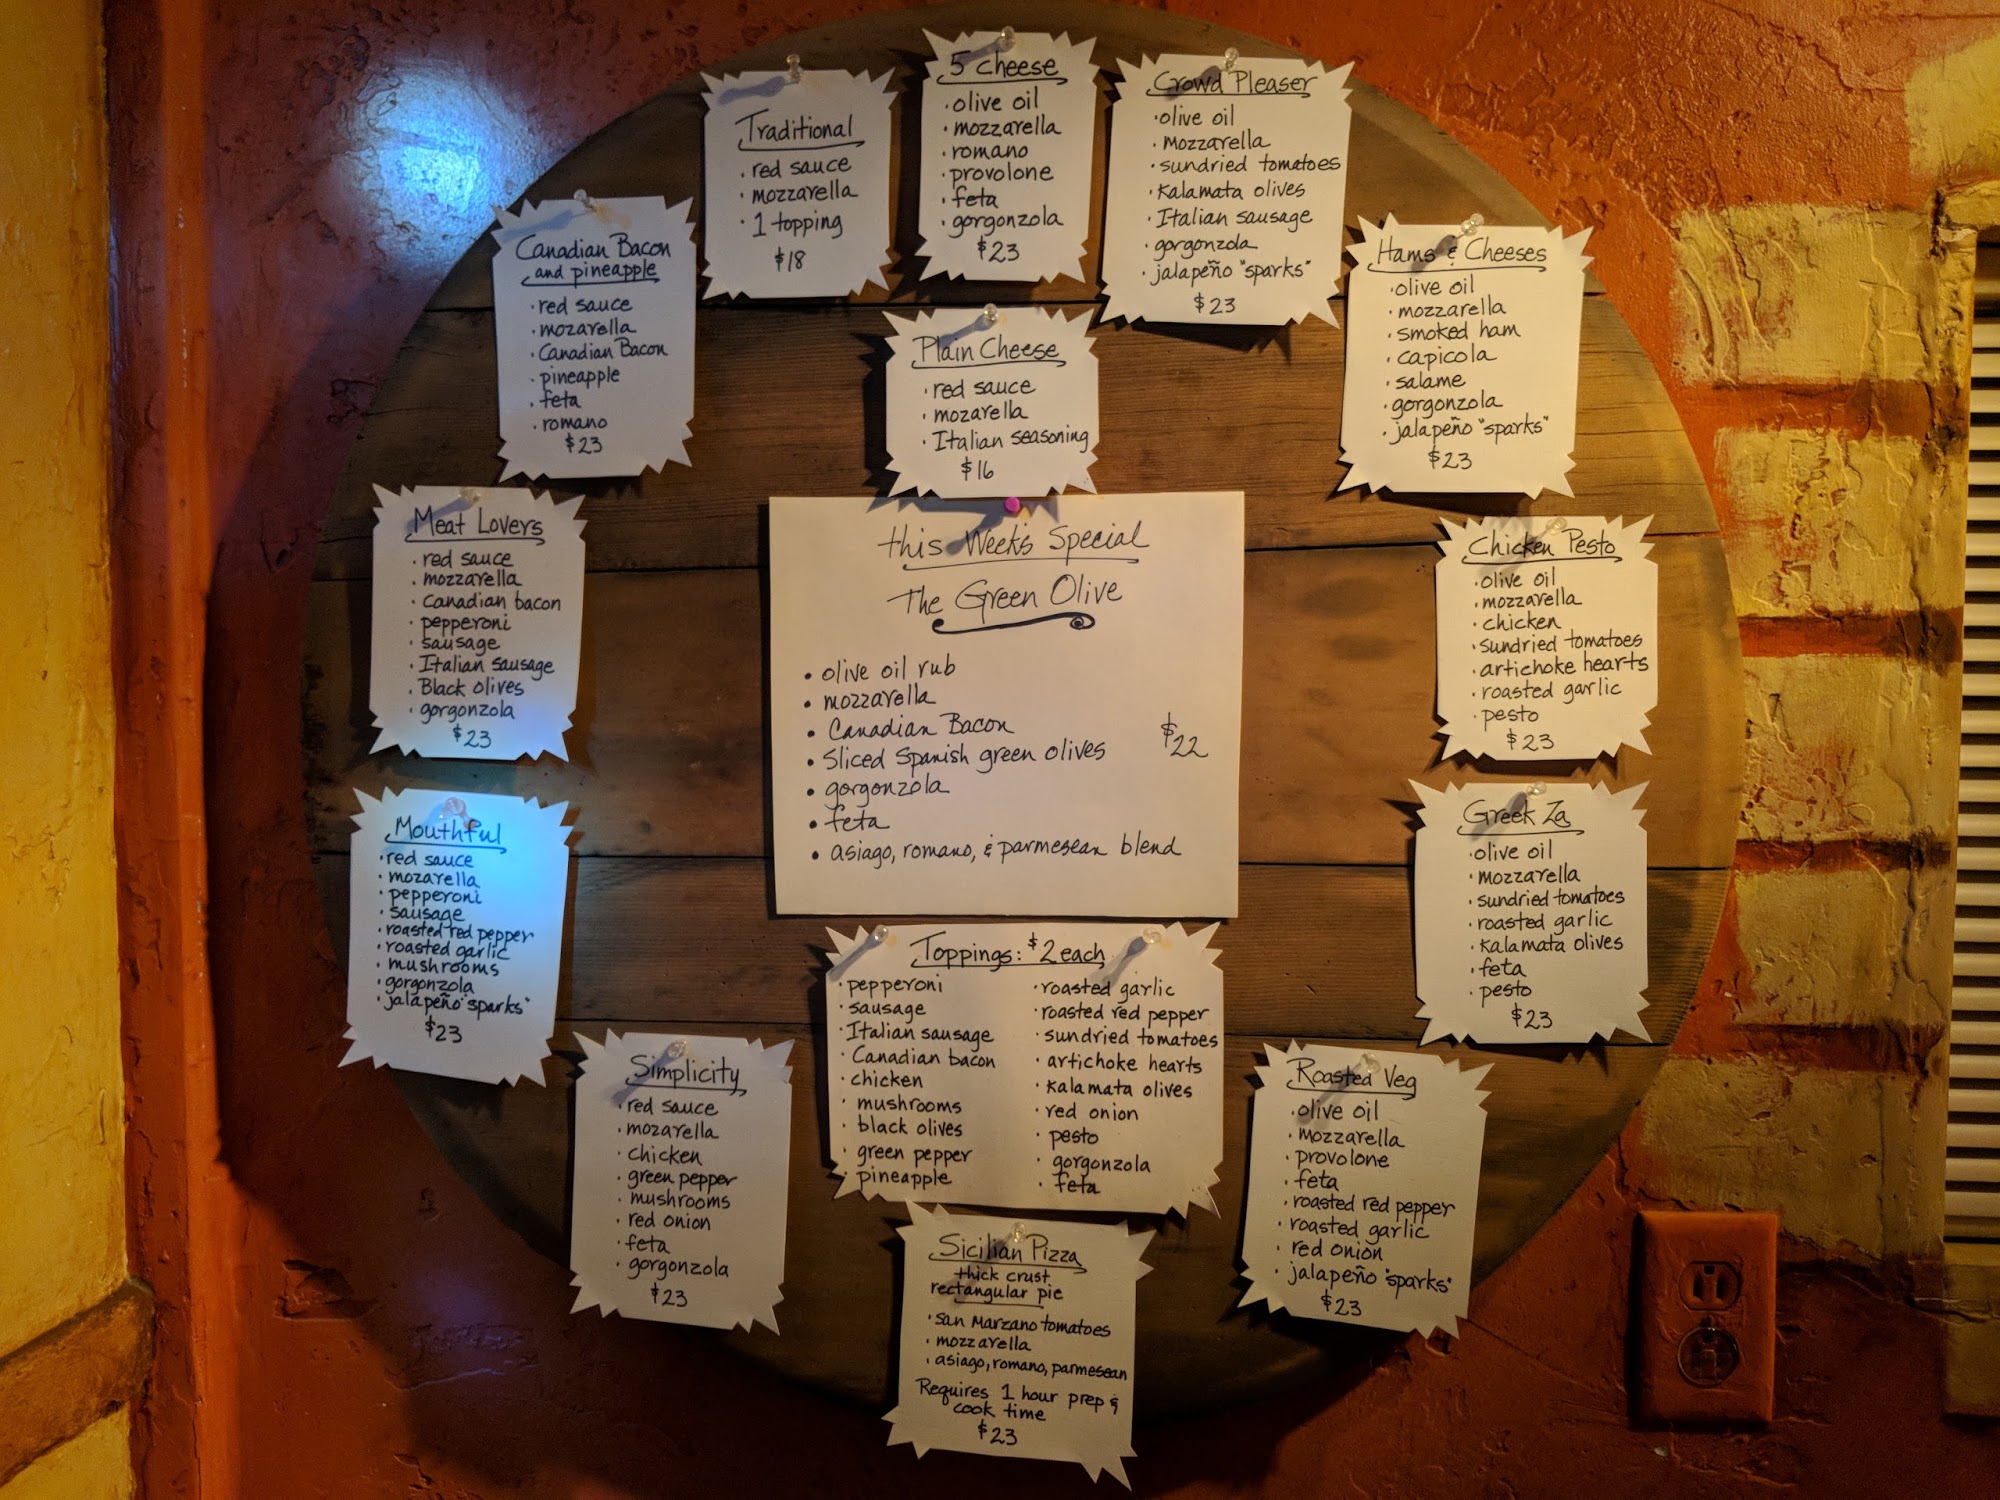 5 Cheese
• olive oil
• mozzarella
• romano
• provolone
• feta
• gorgonzola
$23
Crowd Pleaser
• olive oil
• mozzarella
• sundried tomatoes
• kalamata olives
• Italian sausage
• gorgonzola
• jalapeño "sparks"
$23
Traditional
• red sauce
• mozzarella
• 1 topping
$18
Canadian Bacon
and pineapple
• red sauce
• mozarella
• Canadian Bacon
• pineapple
• feta
• romano
$23
Plain Cheese
• red sauce
• mozarella
• Italian seasoning
$16
Hams & Cheeses
• olive oil
• mozzarella
• smoked ham
• capicola
• salame
• gorgonzola
• jalapeño "sparks"
$23
Meat Lovers
• red sauce
• mozzarella
• Canadian bacon
• pepperoni
• sausage
• Italian sausage
• Black olives
• gorgonzola
$23
this Week's Special
The Green Olive
• olive oil rub
• mozzarella
• Canadian Bacon
• Sliced Spanish green olives
• gorgonzola
• feta
• asiago, romano, & parmesean blend
$22
Chicken Pesto
• olive oil
• mozzarella
• chicken
• sundried tomatoes
• artichoke hearts
• roasted garlic
• pesto
$23
Mouthful
• red sauce
• mozarella
• pepperoni
• sausage
• roasted red pepper
• roasted garlic
• mushrooms
• gorgonzola
• jalapeño "sparks"
$23
Greek Za
• olive oil
• mozzarella
• sundried tomatoes
• roasted garlic
• kalamata olives
• feta
• pesto
$23
Toppings: $2 each
• pepperoni
• sausage
• Italian sausage
• Canadian bacon
• chicken
• mushrooms
• black olives
• green pepper
• pineapple
• roasted garlic
• roasted red pepper
• sundried tomatoes
• artichoke hearts
• kalamata olives
• red onion
• pesto
• gorgonzola
• feta
Simplicity
• red sauce
• mozarella
• chicken
• green pepper
• mushrooms
• red onion
• feta
• gorgonzola
$23
Roasted Veg
• olive oil
• mozzarella
• provolone
• feta
• roasted red pepper
• roasted garlic
• red onion
• jalapeño "sparks"
$23
Sicilian Pizza
thick crust
rectangular pie
• san Marzano tomatoes
• mozzarella
• asiago, romano, parmesean
Requires 1 hour prep &
cook time
$23